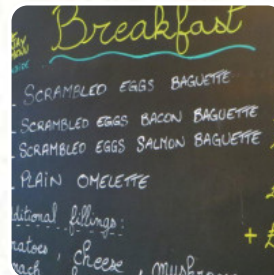 Breakfast
- SCRAMBLED EGGS BAGUETTE
- SCRAMBLED EGGS BACON BAGUETTE
- SCRAMBLED EGGS SALMON BAGUETTE
- PLAIN OMELETTE
fillings:
, cheese